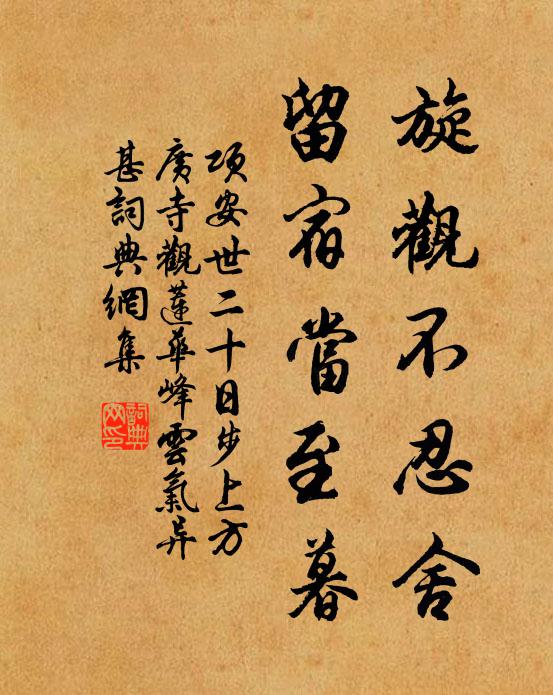 旋觀不忍舍
留宿當至暮
項安世二十日步上方
廣寺觀蓮華峰雲氣异
甚詞典網集
詞典網印